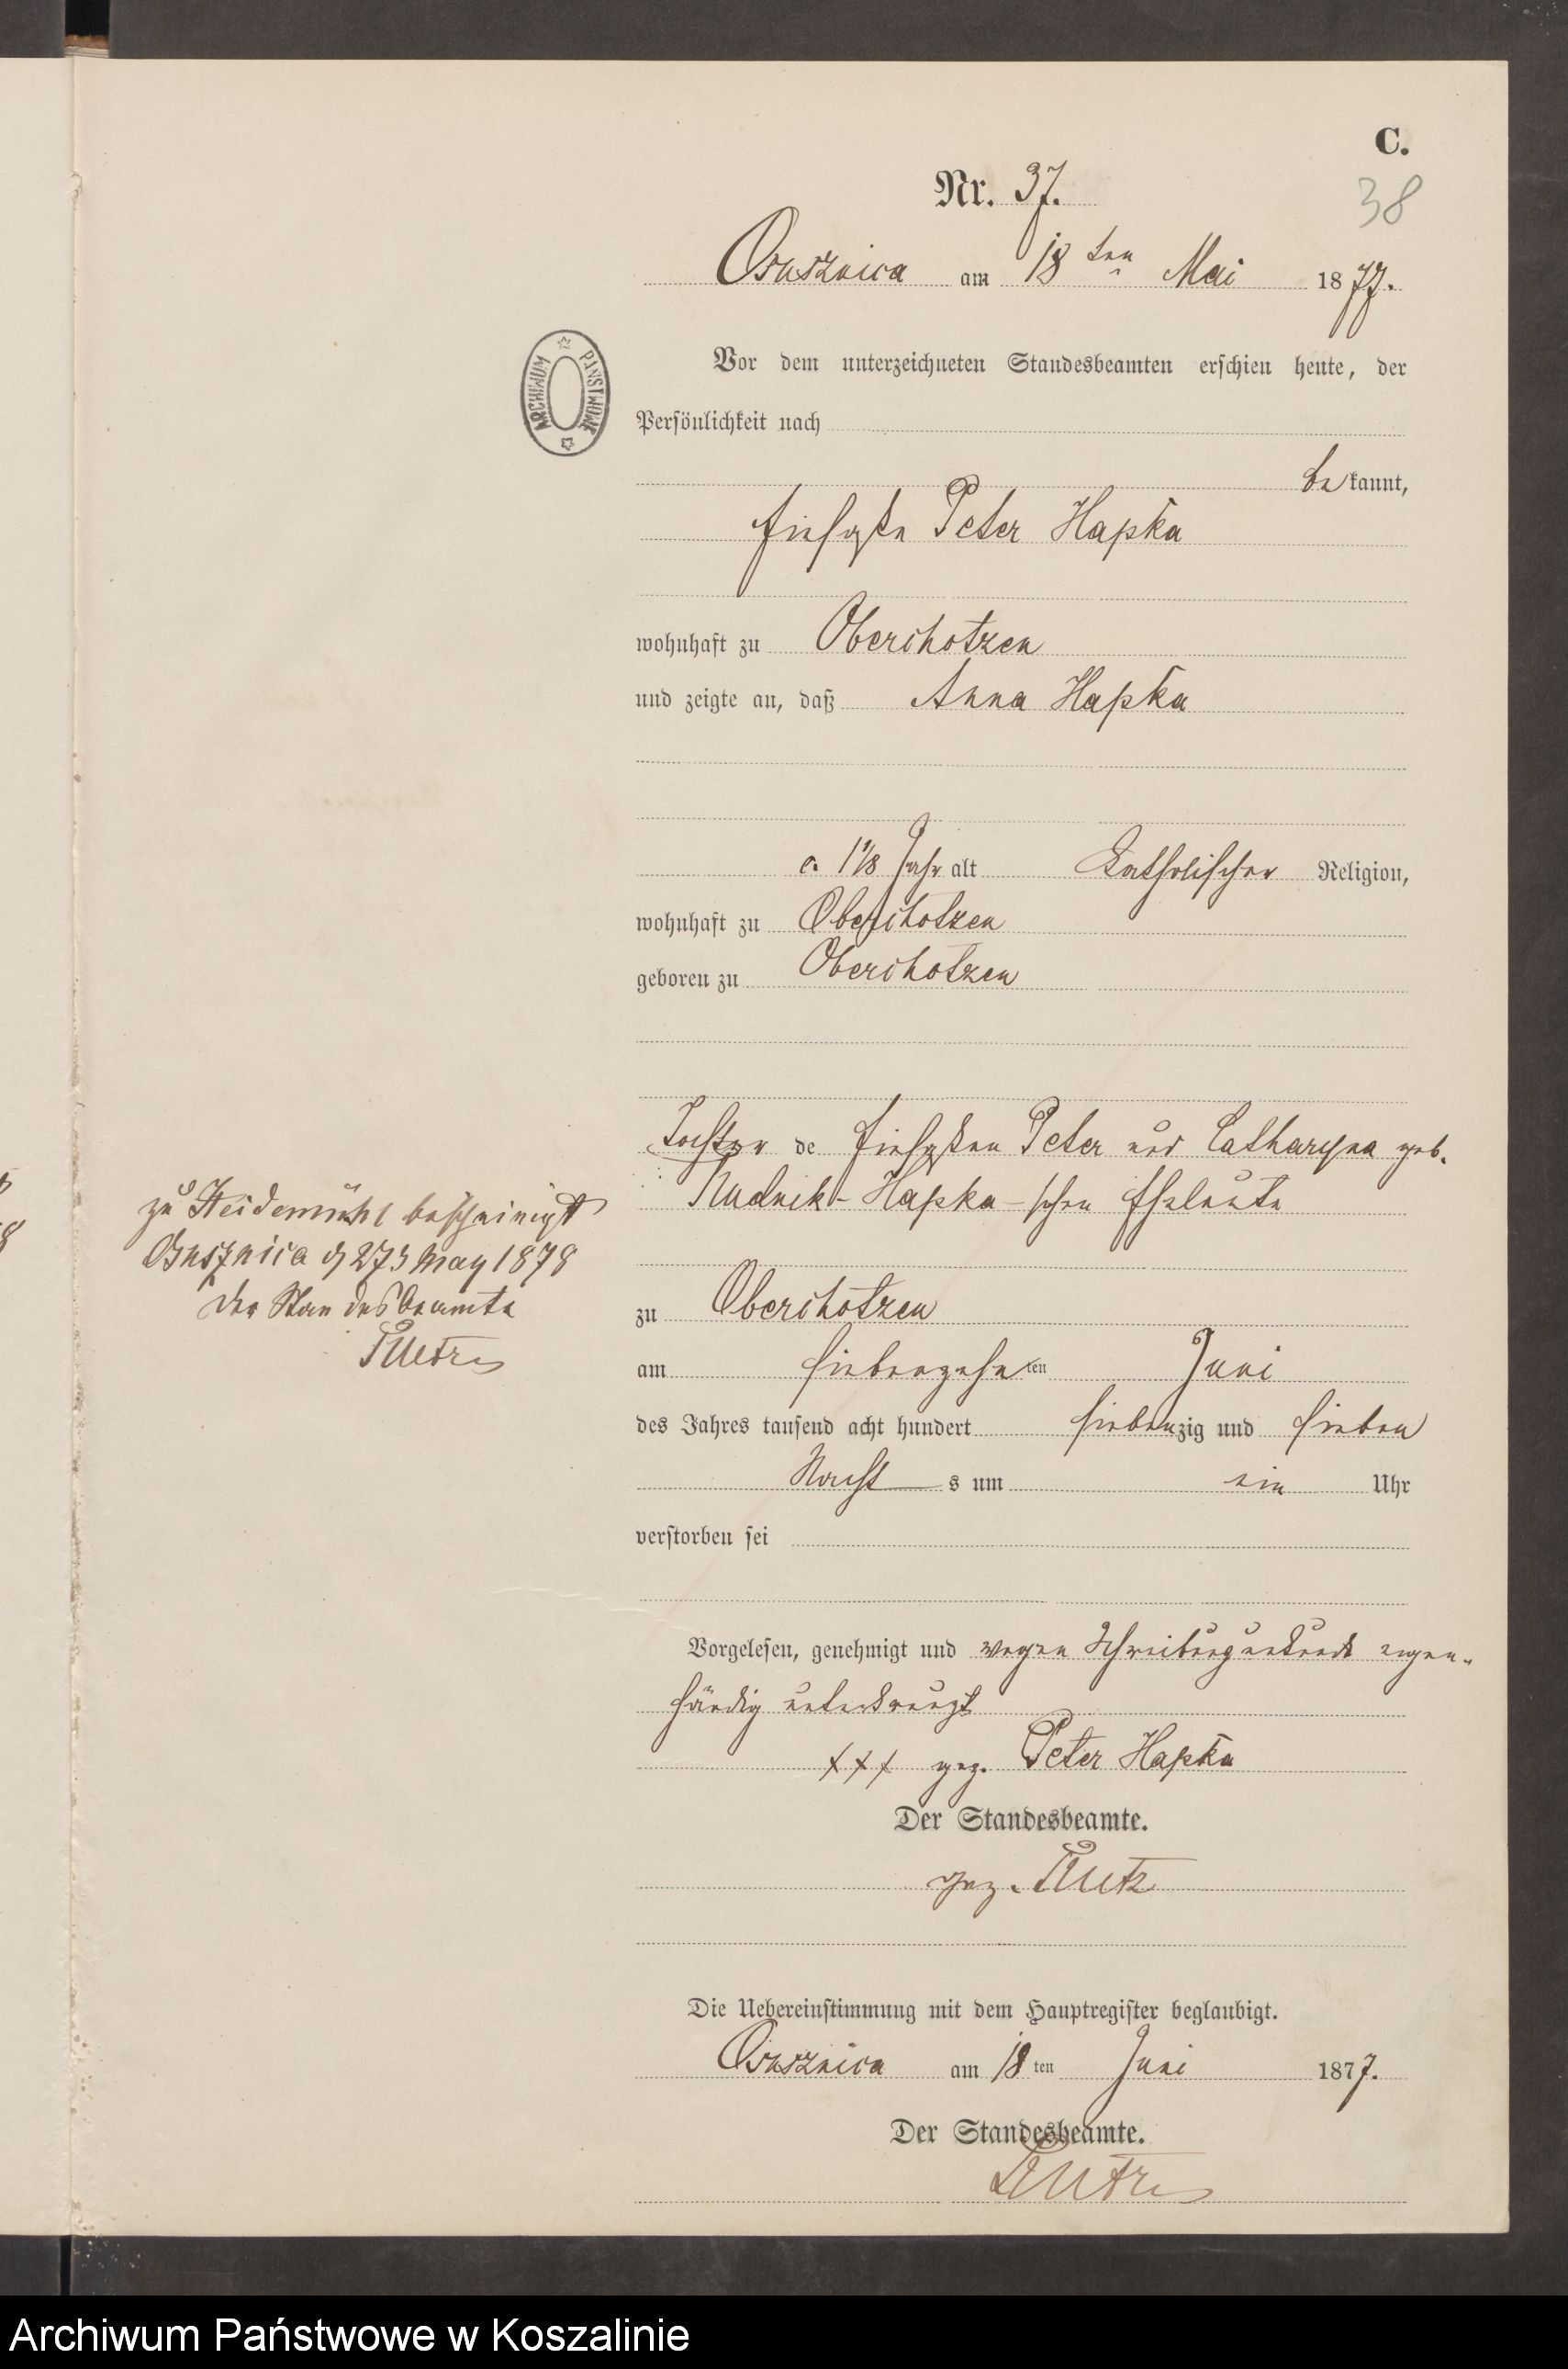 C.
Nr. 37.
38
Osusznica am 18 ten Mai 1877.
Vor dem unterzeichneten Standesbeamten erschien heute, der
Persönlichkeit nach
bekannt,
Peter Hapka
wohnhaft zu Oberchotzen
und zeigte an, daß Anna Hapka
c. 1 1/8 Jahr alt Katholischer Religion,
wohnhaft zu Oberchotzen
geboren zu Oberchotzen
Tochter de Peter und Catharyna geb.
Rudnik-Hapka-schen Eheleute
zu Heidemühl bescheinigt
Osusznica d 27 May 1878
Der Standesbeamte
zu Oberchotzen
am siebenzehnten Juni
des Jahres tausend acht hundert siebenzig und sieben
Nachts um ein Uhr
verstorben sei
Vorgelesen, genehmigt und wegen Schreibensunkunde eigen-
händig unterkreuzt
+++ gez. Peter Hapka
Der Standesbeamte.
gez.
Die Uebereinstimmung mit dem Hauptregister beglaubigt.
Osusznica am 18ten Juni 1877.
Der Standesbeamte.
ARCHIWUM PAŃSTWOWE
Archiwum Państwowe w Koszalinie